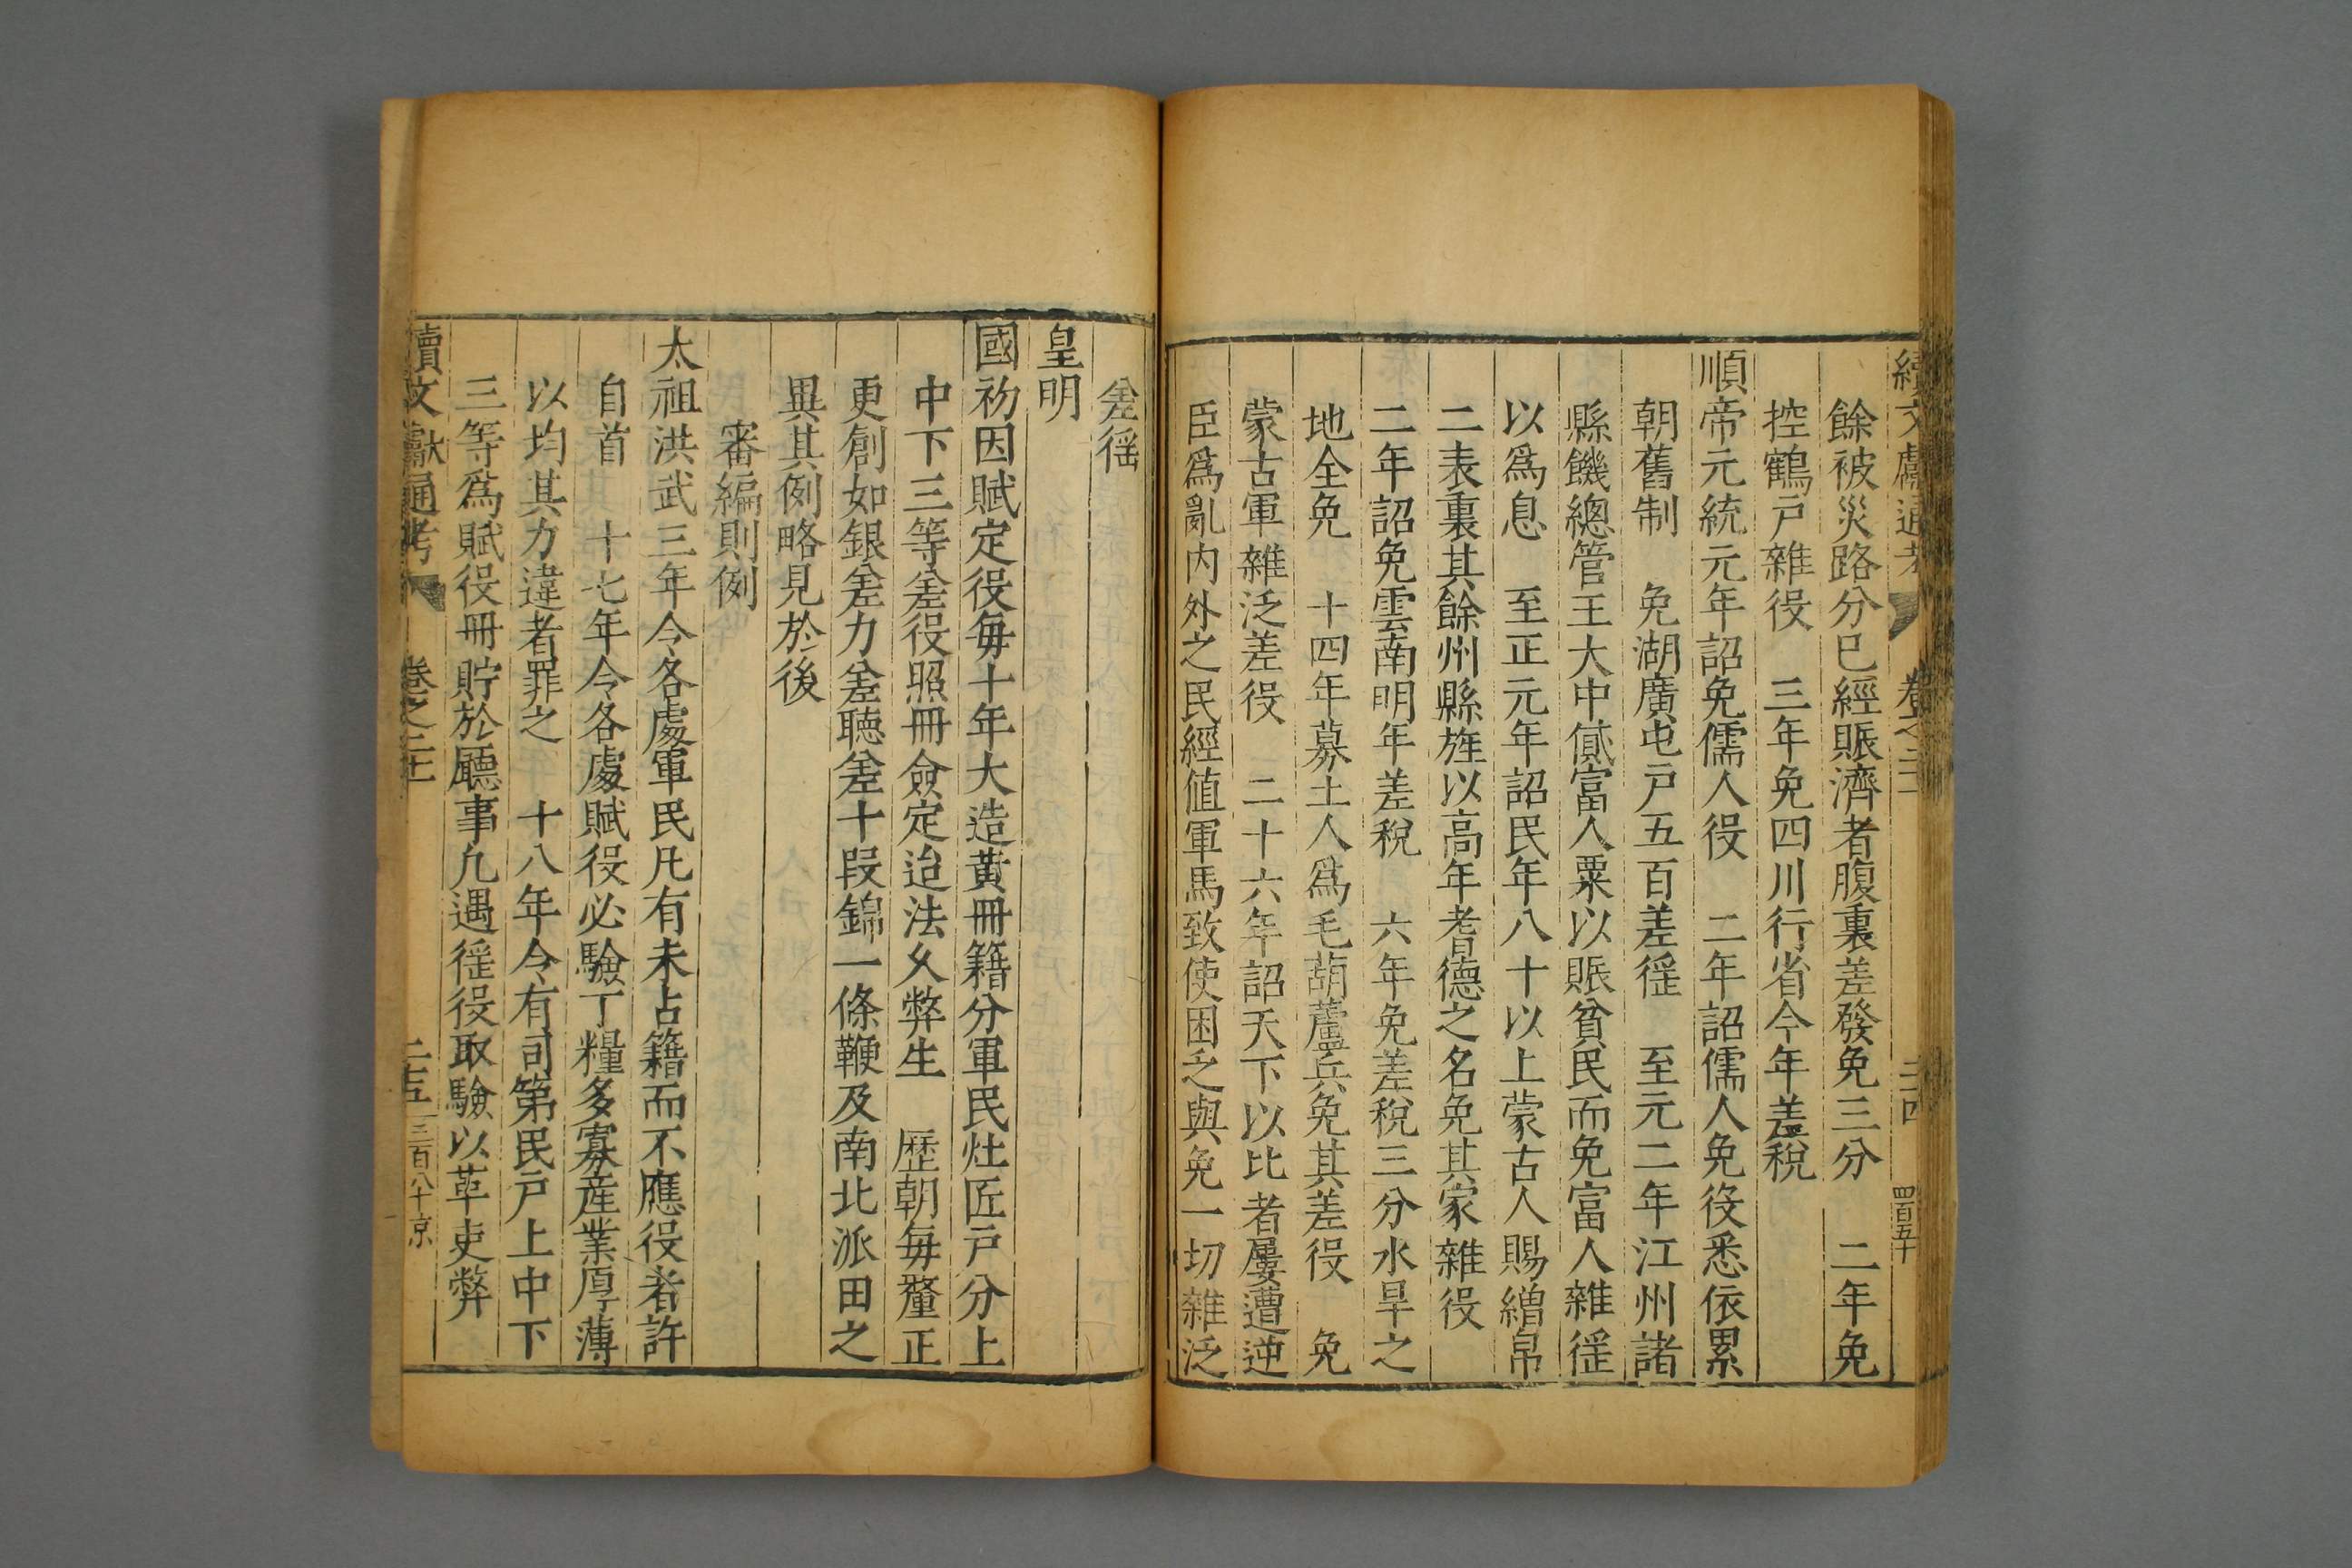 續文獻通考 卷之二十 二十四 四百五十
餘被災路分已經賑濟者腹裏差發免三分 二年免
控鶴戸雜役 三年免四川行省今年差稅
順帝元統元年詔免儒人役 二年詔儒人免役悉依累
朝舊制 免湖廣屯戸五百差徭 至元二年江州諸
縣饑總管王大中貸富人粟以賑貧民而免富人雜徭
以爲息 至正元年詔民年八十以上蒙古人賜繒帛
二表裏其餘州縣旌以高年耆德之名免其家雜役
二年詔免雲南明年差稅 六年免差稅三分水旱之
地全免 十四年募土人爲毛葫蘆兵免其差役 免
蒙古軍雜泛差役 二十六年詔天下以比者屢遭逆
臣爲亂内外之民經值軍馬致使困乏與免一切雜泛
差徭
皇明
國初因賦定役每十年大造黃冊籍分軍民灶匠戸分上
中下三等差役照冊僉定迨法久弊生 歷朝每釐正
更創如銀差力差聽差十段錦一條鞭及南北派田之
異其例略見於後
審編則例
太祖洪武三年令各處軍民凡有未占籍而不應役者許
自首 十七年令各處賦役必驗丁糧多寡產業厚薄
以均其力違者罪之 十八年令有司第民戸上中下
三等爲賦役冊貯於廳事凡遇徭役取驗以革吏弊
續文獻通考 卷之二十 二十五 三百八十京